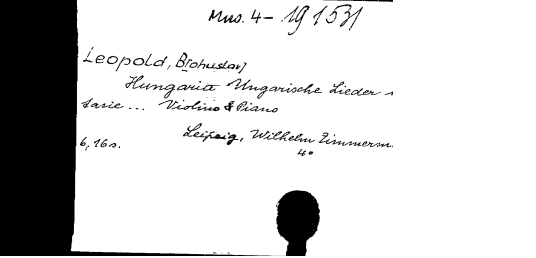 Mus. 4 - 19 1531
Leopold, B[ohuslav]
Hungaria Ungarische Lieder
tasie ... Violino & Piano
Leipzig, Wilhelm Zimmerm.
6, 16 s. 4°